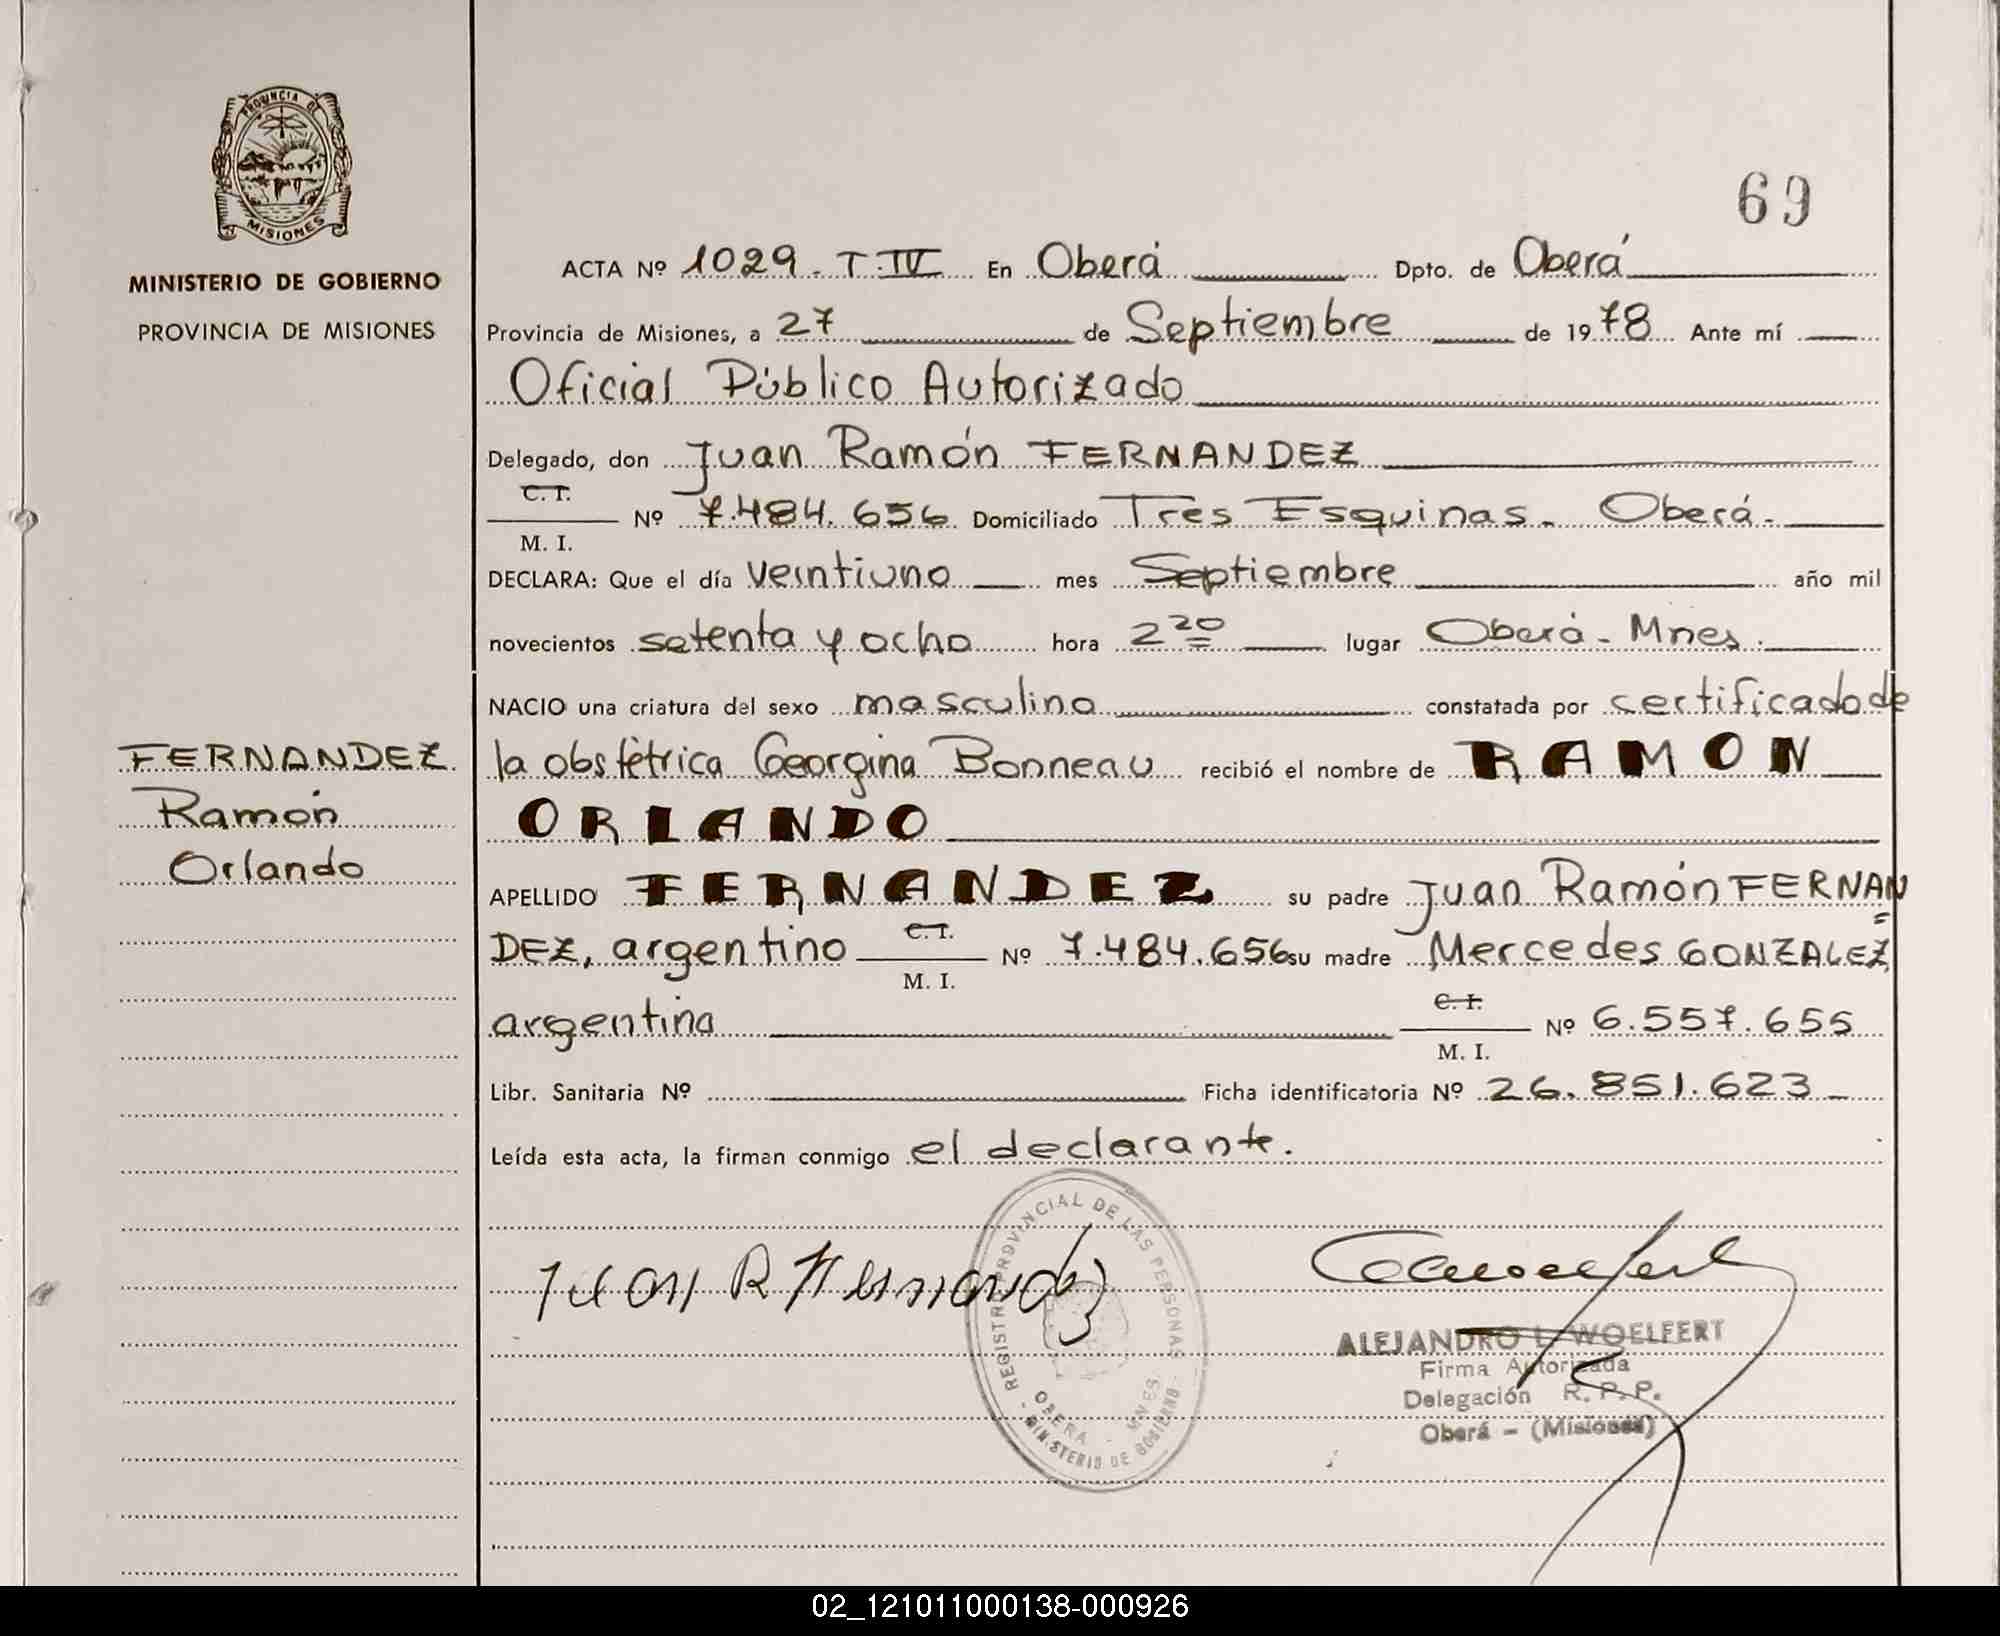 PROVINCIA DE
MISIONES
MINISTERIO DE GOBIERNO
PROVINCIA DE MISIONES
69
ACTA Nº 1029. T. IV En Oberá Dpto. de Oberá
Provincia de Misiones, a 27 de Septiembre de 1978 Ante mí
Oficial Público Autorizado
Delegado, don Juan Ramón FERNANDEZ
C. I.
M. I. Nº 7.484.656 Domiciliado Tres Esquinas. Oberá.
DECLARA: Que el día veintiuno mes Septiembre año mil
novecientos setenta y ocho hora 2 20 lugar Oberá - Mnes.
NACIO una criatura del sexo masculino constatada por certificado de
la obstètrica Georgina Bonneau recibió el nombre de RAMON
ORLANDO
APELLIDO FERNANDEZ su padre Juan Ramón FERNAN=
DEZ, argentino C. I. M. I. Nº 7.484.656 su madre Mercedes GONZALEZ
argentina C. I. M. I. Nº 6.557.655
Libr. Sanitaria Nº Ficha identificatoria Nº 26.851.623
Leída esta acta, la firman conmigo el declarante.
FERNANDEZ
Ramón
Orlando
Juan R Fernandez
REGISTRO PROVINCIAL DE LAS PERSONAS
OBERA - MNES.
- MINISTERIO DE GOBIERNO -
ALEJANDRO L. WOELFERT
Firma Autorizada
Delegación R. P. P.
Oberá - (Misiones)
02_121011000138-000926